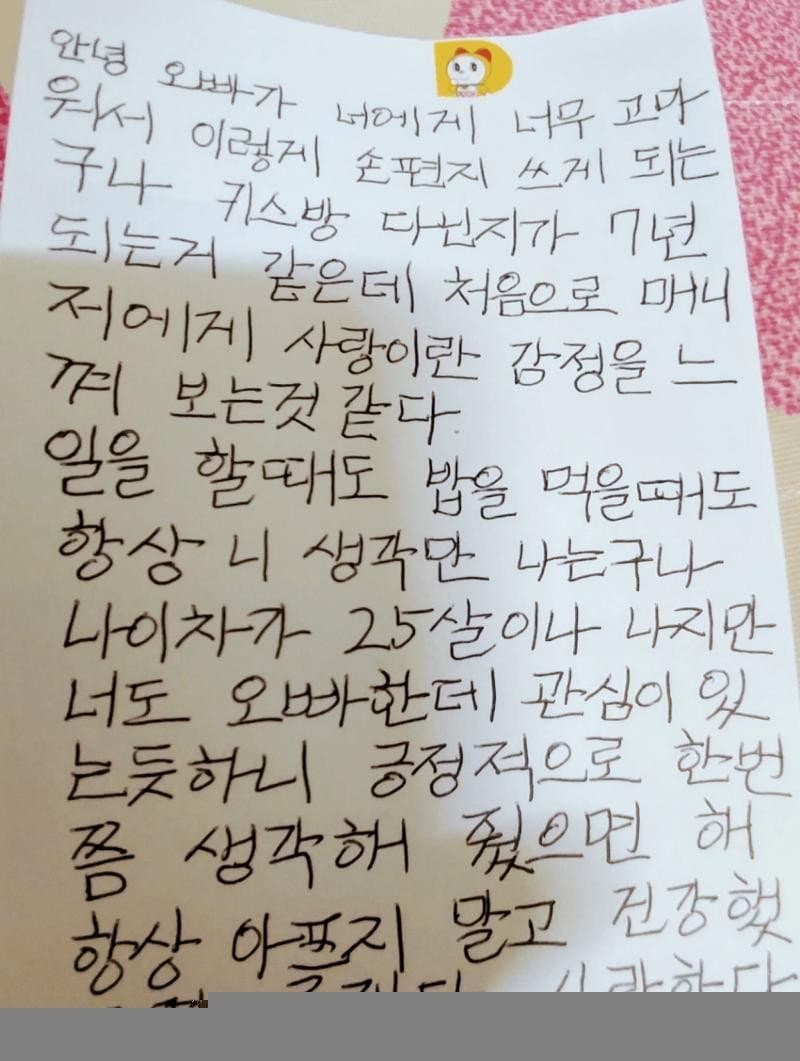 안녕 오빠가 너에게 너무 고마
워서 이렇게 손편지 쓰게 되는
구나 키스방 다닌지가 7년
되는거 같은데 처음으로 매니
저에게 사랑이란 감정을 느
껴 보는것 같다.
일을 할때도 밥을 먹을때도
항상 니 생각만 나는구나
나이차가 25살이나 나지만
너도 오빠한데 관심이 있
는듯하니 긍정적으로 한번
쯤 생각해 줬으면 해
항상 아프지 말고 건강했
사랑한다